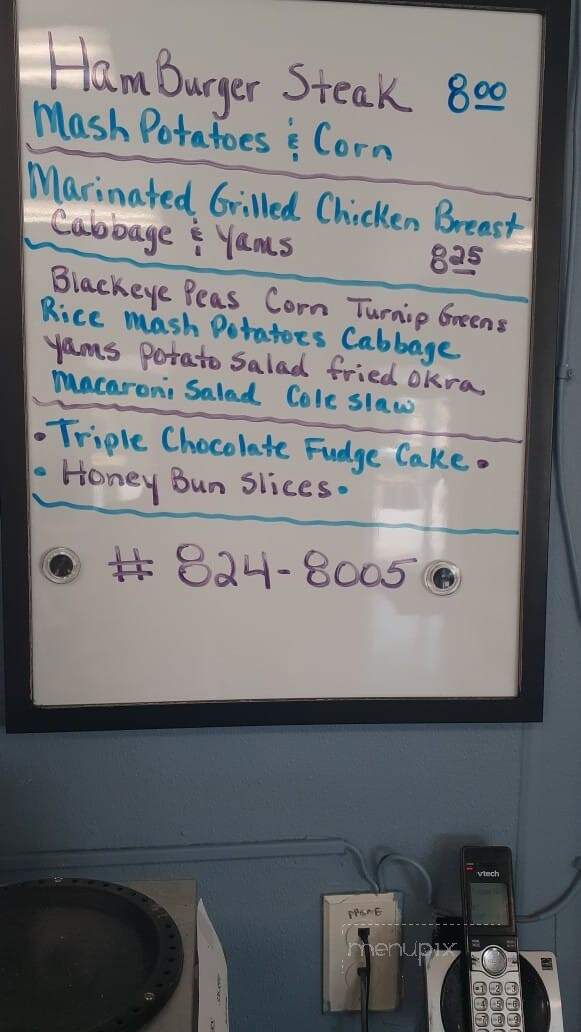 HamBurger Steak 8⁰⁰
Mash Potatoes & Corn
Marinated Grilled Chicken Breast
Cabbage & Yams 8²⁵
Blackeye Peas Corn Turnip Greens
Rice Mash Potatoes Cabbage
Yams Potato Salad fried okra
Macaroni Salad Cole slaw
• Triple Chocolate Fudge Cake •
• Honey Bun Slices •
# 824-8005
vtech
menupix